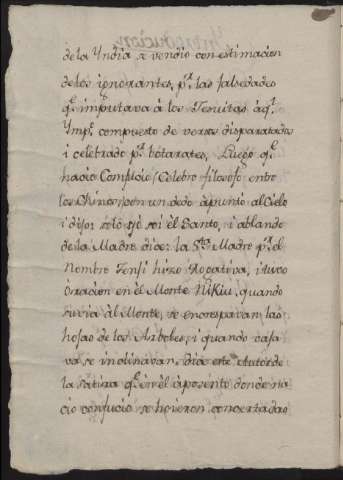 de la Yndia se vendio con estimacion
de los ignorantes, pr. las falsedades
qe. imputava à los Jesuitas aql.
Ympo. compuesto de versos disparatados
i celebrado pr. botarates, Luego qe.
nacio Confucio (Celebre filosofo entre
los Chinos) con un dedo apunto al Cielo
i dijo: solo yo soi el Santo, i ablando
de la Madre dice: la Sta. Madre pr. el
nombre Jensi hizo Rogativa, i tuvo
oracion en el Monte Nikiu, quando
subia àl Monte, se encrespavan las
hojas de los Arboles, i quando baja
va se inclinavan, dice este Autor de
la satira qe. en el aposento donde na
cio confucio se hoieron concertadas